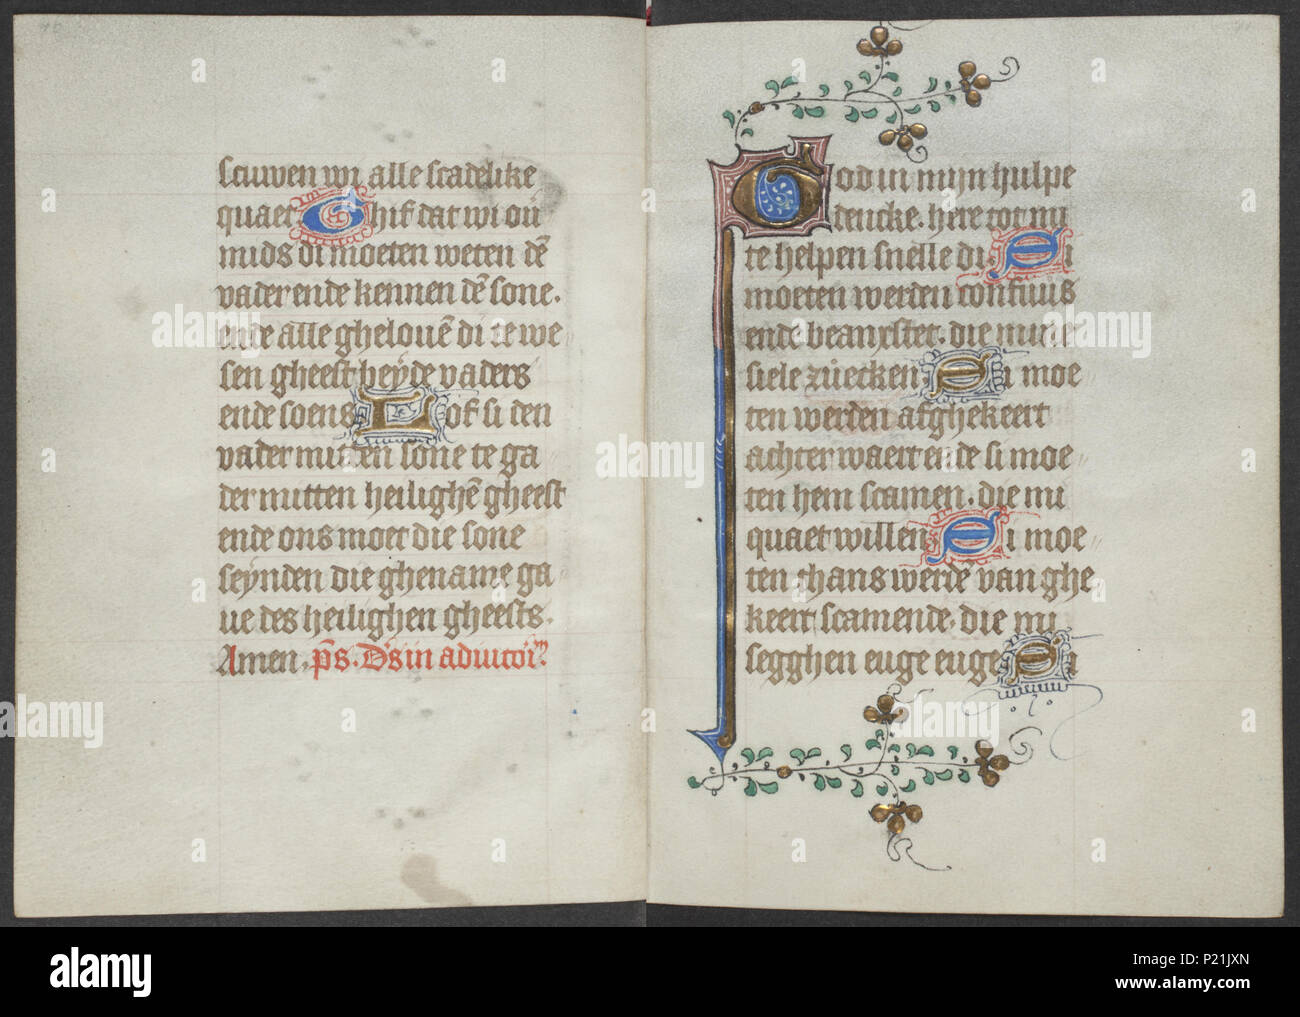 scuwen wi alle scadelike
quaet Ghif dat wi oū
mids di moeten weten dē
vader ende kennen dē sone.
ende alle ghelouē di te we
sen gheest beyde vaders
ende soens Lof si den
vader mitten sone te ga
der mitten heilighē gheest
ende ons moet die sone
seynden die ghename ga
ue des heilighen gheests.
Amen. p̄s. Ds in adiutoriͫ.
God in mijn hulpe
dencke. here tot mi
te helpen snelle di. Si
moeten werden confuus
ende beanxstet. die mine
siele zuecken Si moe
ten werden afghekeert
achterwaert ende si moe
ten hem scamen. die mi
quaet willen Si moe
ten thans werdē van ghe
keert scamende. die mi
segghen euge euge Si
alamy
alamy stock photo
alamy
Image ID: P21JXN
www.alamy.com